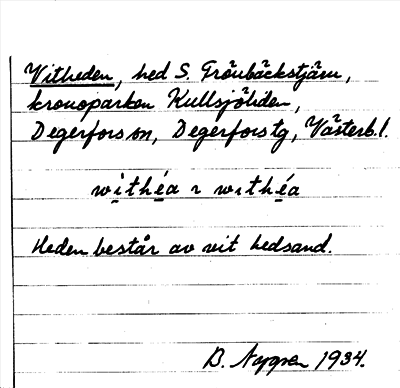 Vitheden, hed S. Gröubäckstjärn,
kronoparken Kullsjöliden,
Degerfors sn, Degerfors tg, Västerb. l.
withéa ɿ withéa
Heden består av vit hedsand.
B. Nygren 1934.